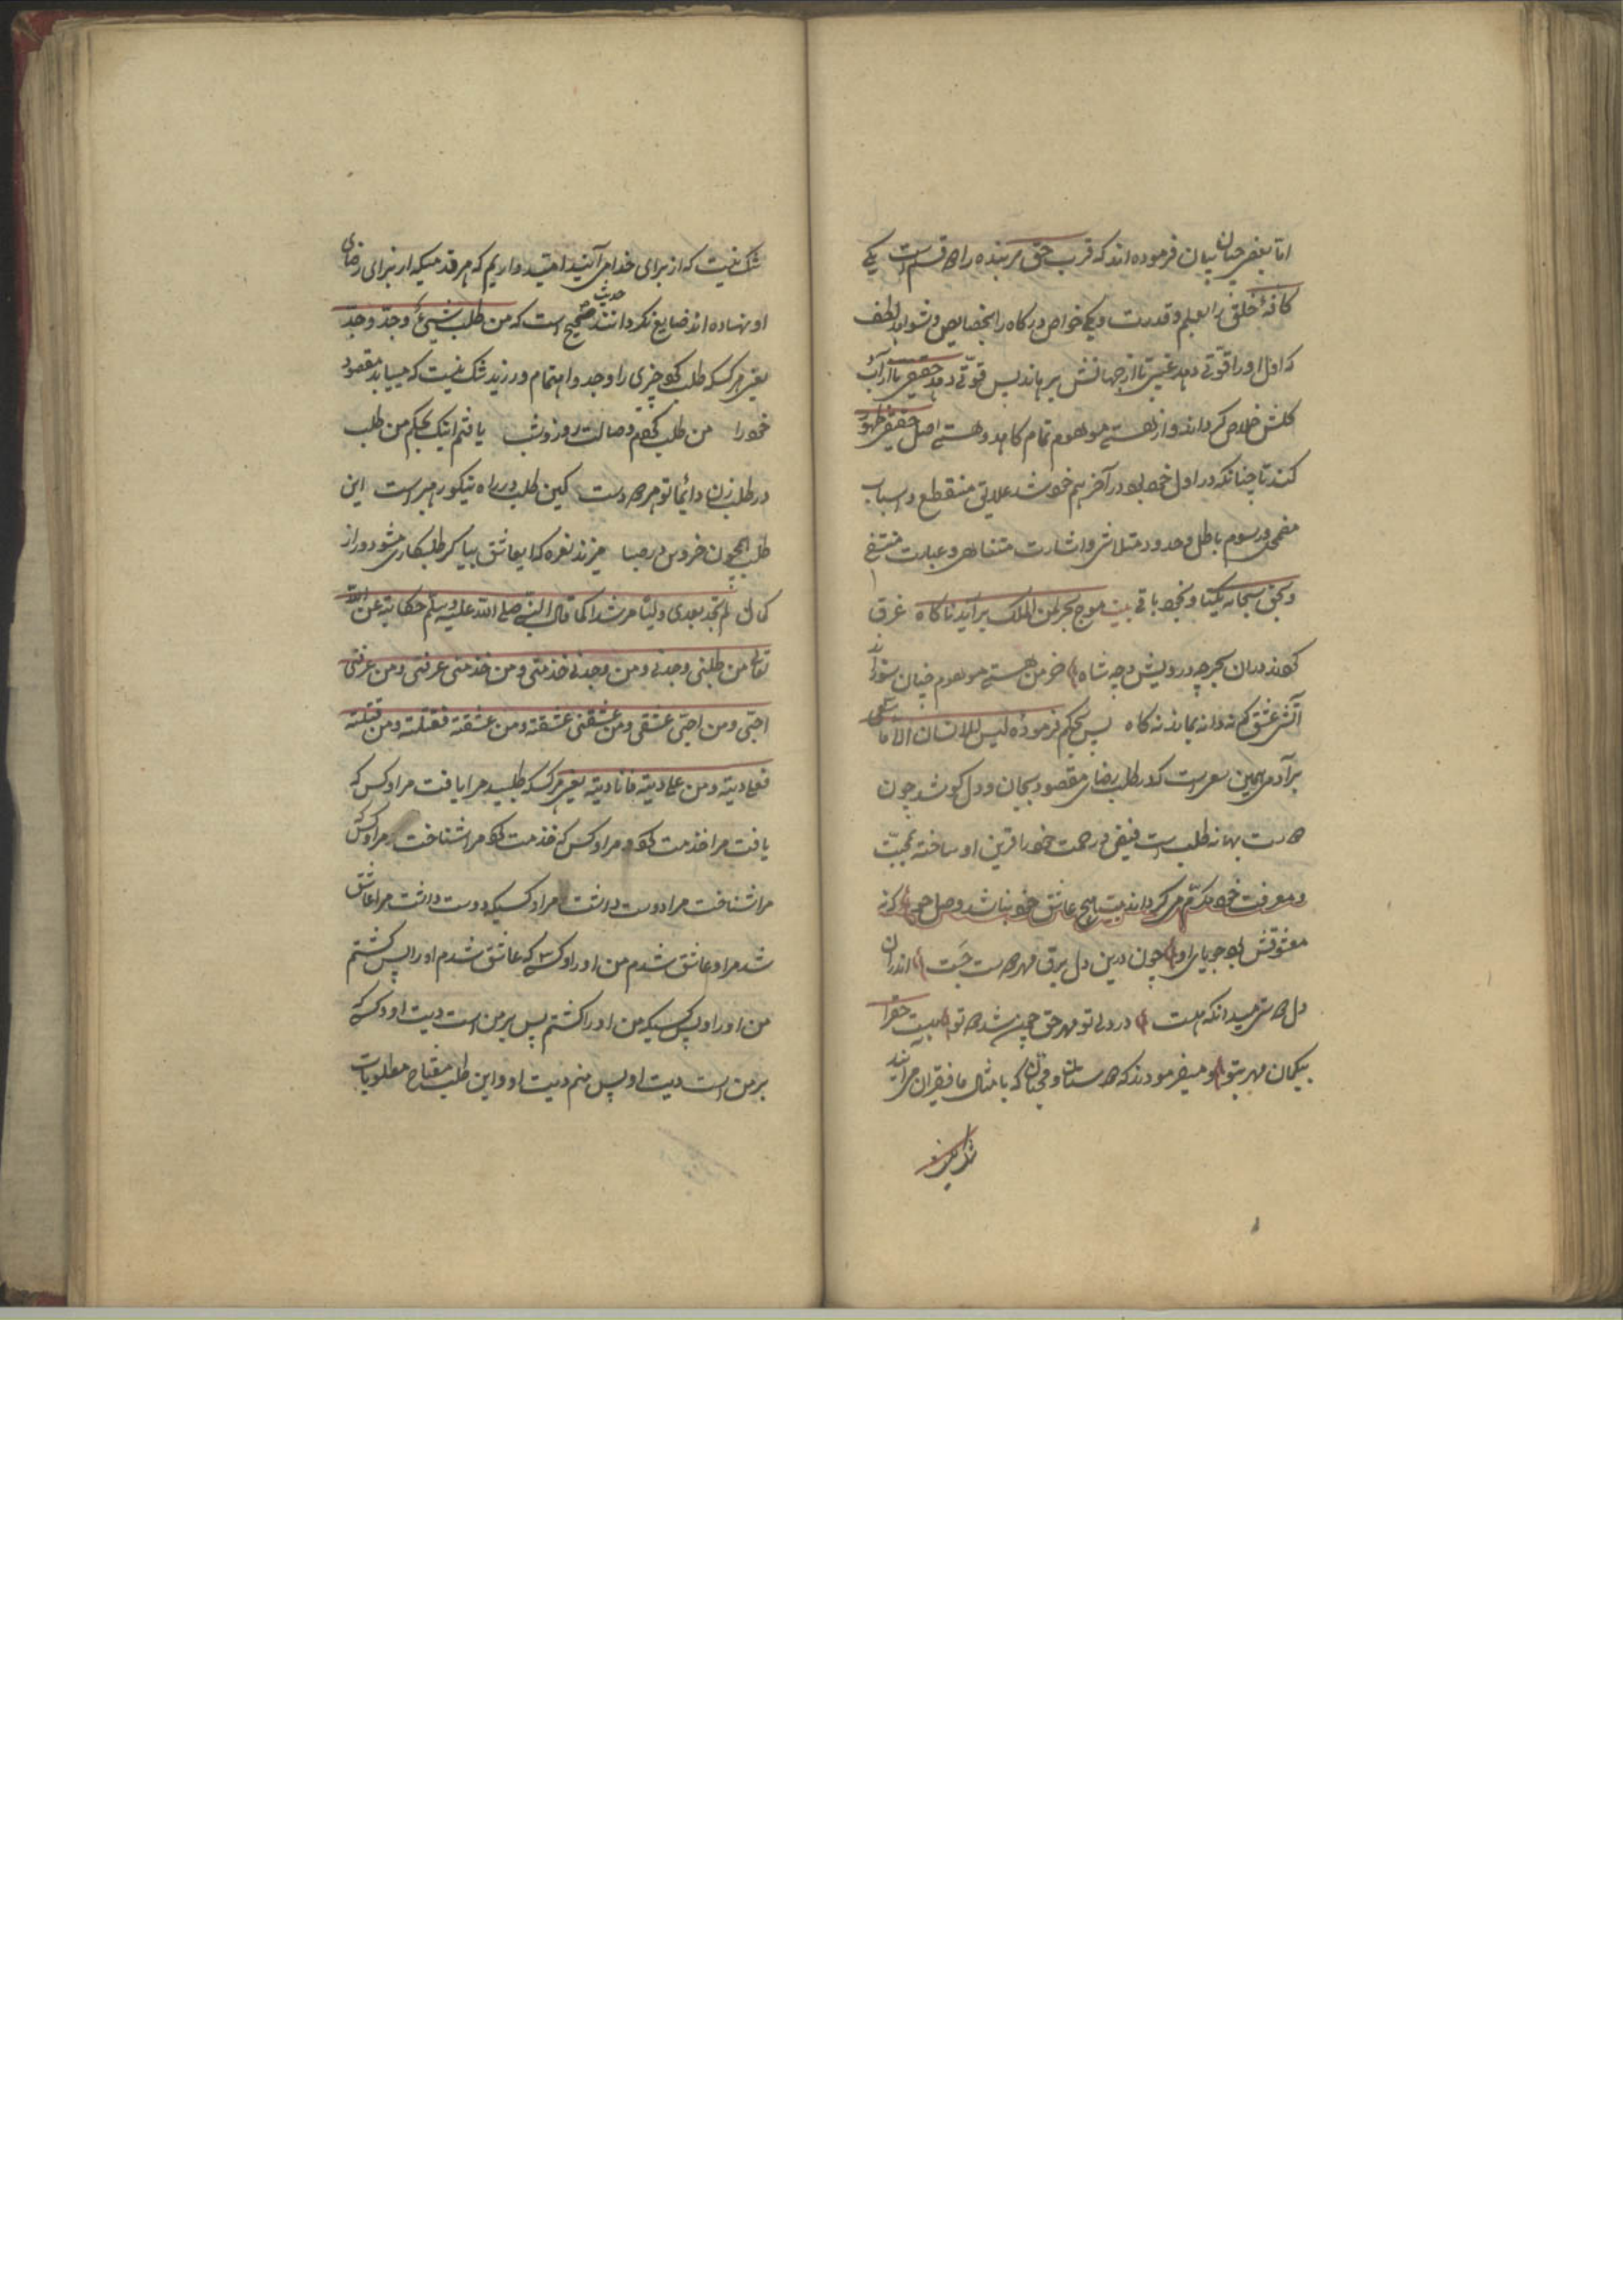 اما بعضی چنان بیان فرموده اند که قرب حق مر بنده را دو قسم است یکی
کافهٔ خلق را بعلم و قدرت و یکی خواص درگاه را بخصایص و شواهد لطف
که اول او را قوتی دهد غیبی تا از جهانش برهاند پس قوتی دهد حقیقی تا از آب
گلش خلاص گرداند و از هستی موهوم تمام کاهد و هستی اصل حقیقی ظهور
کند تا چنانکه در اول خود بود در آخر هم خود شد علایق منقطع و اسباب
مضمحل و رسوم باطل و حدود متلاشی و اشارت متناهی و عبارت منتفی
و بحق سبحانه یکتا و بخود باقی بیت موج بحر لمن الملک برآید ناگاه غرق
گردند دران بحر چه درویش و چه شاه خرمن هستی موهوم چنان سوزاند
آتش عشق که نه دانه بماند نه کاه پس بحکم فرمودهٔ لیس للانسان الا ما سعی
بر آدمی همین سعی است که در طلب رضای مقصود بجان و دل کوشد چون
دوست بهانه طلب است فیض و رحمت خود را قرین او ساخته بمحبت
و معرفت خود مکرم می گرداند بیت هیچ عاشق خود نباشد وصل جو که نه
معشوقش بود جویای او چون درین دل برق مهر دوست جست اندران
دل دوستی میدانکه هست در دل تو مهر حق چون شد دو تو هست حق را
بیگمان مهر بتو و میفرمودند که دوستان و محبان که بامثال ما فقیران می آیند
شک نیست
شک نیست که از برای خدا می آیند امید داریم که هر قدمیکه از برای رضای
او نهاده اند ضایع نگردانند حدیث صحیح است که من طلب شیئ وجد وجد
یعنی هر کسیکه طلب کرد چیزی را و جد و اهتمام ورزید شک نیست که مییابد مقصود
خود را من طلب کردم وصالت روز و شب یافتم اینک بحکم من طلب
در طلب زن دائما تو هر دو دست کین طلب در راه نیکو رهبر است این
طلب همچون خروس در صبا میزند نعره که ای عاشق بیا گر طلبکاری مشو دور از
کمال لم تجد بعدی ولیا مرشدا کما قال النبی صلی الله علیه وسلم حکایة عن الله
تعالی من طلبنی وجدنی ومن وجدنی خدمنی ومن خدمنی عرفنی ومن عرفنی
احبنی ومن احبنی عشقنی ومن عشقنی عشقته ومن عشقته فقتلته ومن قتلته
فعلی دیته ومن علی دیته فانا دیته یعنی هر کسیکه طلبید مرا یافت مرا و کس که
یافت مرا خدمت کرد مرا و کس که خدمت کرد مرا شناخت مرا و کس که
مرا شناخت مرا دوست داشت مرا و کسیکه دوست داشت مرا عاشق
شد مرا و عاشق شدم من او را و کسی که عاشق شدم او را پس کشتم
من او را و پس کسیکه من او را کشتم پس بر من است دیت او و کسی که
بر من است دیت او پس منم دیت او و این طلب مفتاح مطلوبات